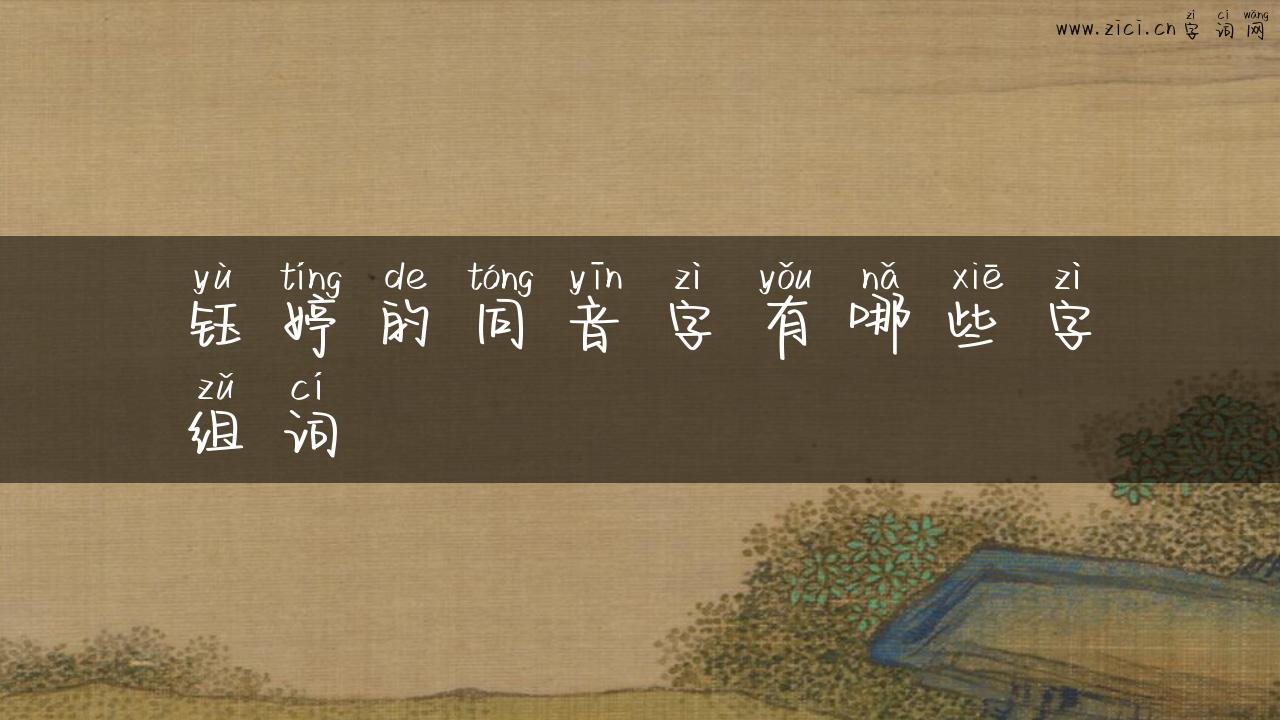 zì cí wǎng
www.zici.cn 字词网
yù tíng de tóng yīn zì yǒu nǎ xiē zì
钰婷的同音字有哪些字
zǔ cí
组词